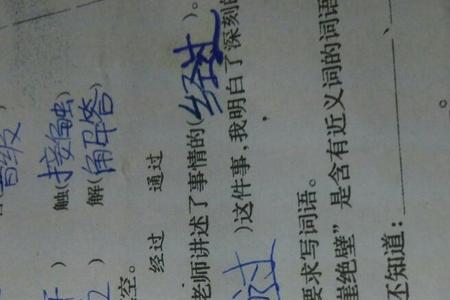 级)
) 触(接触)
) 解(解答)
空。
经过 通过
老师讲述了事情的(经过)。
过)这件事,我明白了深刻的
要求写词语。
崖绝壁”是含有近义词的词语
还知道:、。